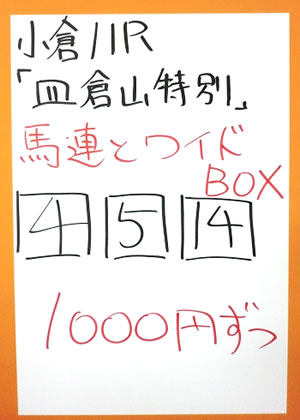 小倉11R
「皿倉山特別」
馬連とワイド
BOX
4 5 14
1000円ずつ